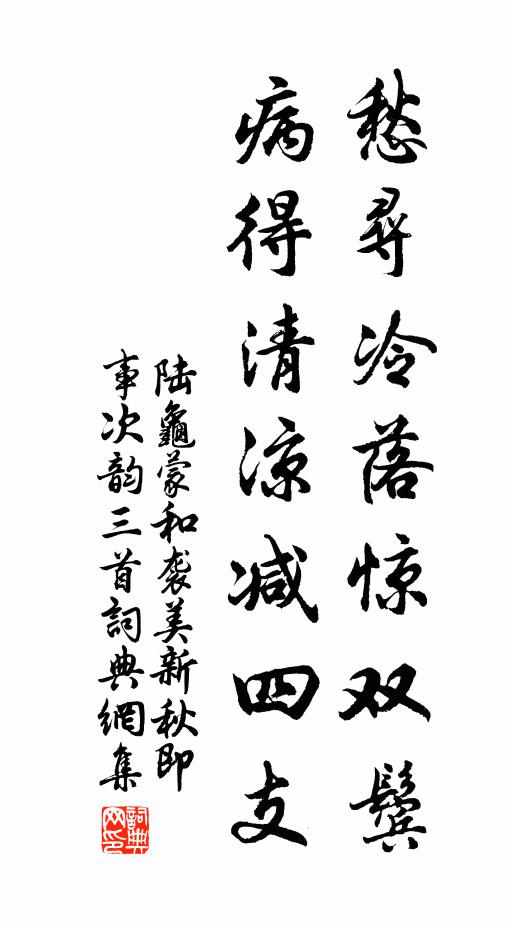 愁尋冷落惊双鬓
病得清凉减四支
陆龜蒙和袭美新秋即
事次韵三首詞典網集
詞典网印